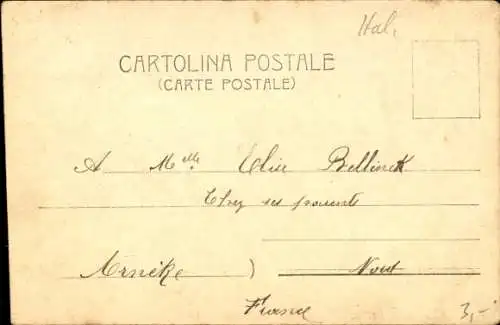 Ital.
CARTOLINA POSTALE
(CARTE POSTALE)
A Melle Elise Bellinck
Chez ses parents
Arneke ) Nord
France
3,-